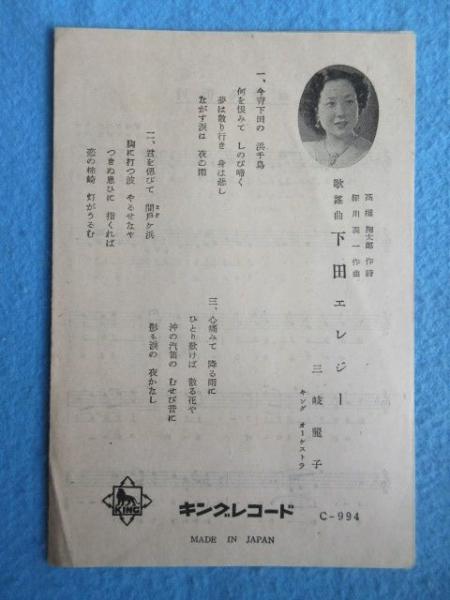 高橋掬太郎 作詩
細川潤一 作曲
歌謡曲 下田エレジー
三岐麗子
キング オーケストラ
一、今宵下田の 浜千鳥
何を恨みて しのび啼く
夢は散り行き 身は悲し
ながす涙は 夜の雨
二、君を偲びて 間戸ケ浜
胸に打つ波 やるせなや
つきぬ思ひに 指くれば
恋の柿崎 灯がうるむ
三、心痛みて 降る雨に
ひとり歎けば 散る花や
沖の汽笛の むせび音に
涙の 夜かたし
KING
キングレコード
C-994
MADE IN JAPAN